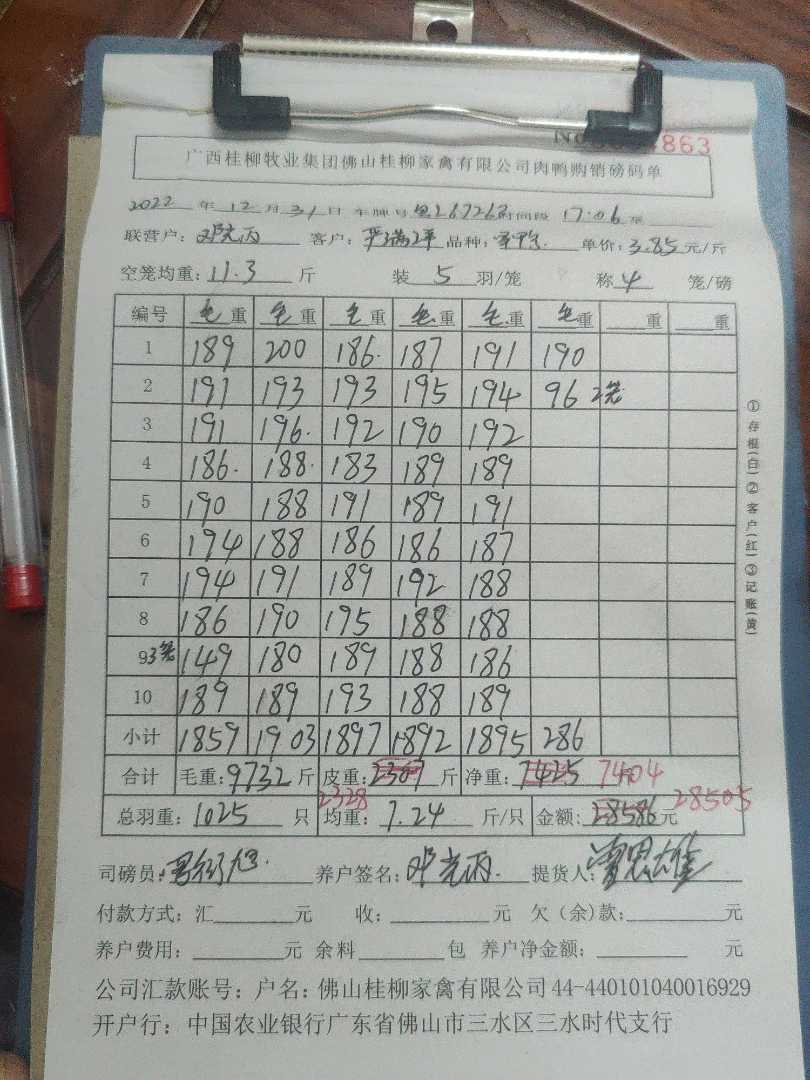 863
广西桂柳牧业集团佛山桂柳家禽有限公司肉鸭购销磅码单
2022 年 12 月 31 日 车牌号 26726 时间段 17:06 至
联营户: 邓光丙 客户: 品种: 单价: 3.85 元/斤
空笼均重: 11.3 斤 装 5 羽/笼 称 4 笼/磅
编号 毛重 毛重 毛重 毛重 毛重 毛重 重 重
1 189 200 186. 187 191 190
2 191 193 193 195 194 96 2笼
3 191 196. 192 190 192
4 186. 188. 183 189 189
5 190 188 191 189 191
6 194 188 186 186 187
7 194 191 189 192 188
8 186 190 195 188 188
9 3笼 149 180 189 188 186
10 189 189 193 188 189
小计 1859 1903 1897 1892 1895 286
合计 毛重: 9732 斤 皮重: 2307 斤 净重: 7425 7404
2328
总羽重: 1025 只 均重: 7.24 斤/只 金额: 28586 元 28505
司磅员: 养户签名: 邓光丙. 提货人:
付款方式: 汇 元 收: 元 欠(余)款: 元
养户费用: 元 余料 包 养户净金额: 元
公司汇款账号: 户名: 佛山桂柳家禽有限公司 44-440101040016929
开户行: 中国农业银行广东省佛山市三水区三水时代支行
①存根(白)②客户(红)③记账(黄)